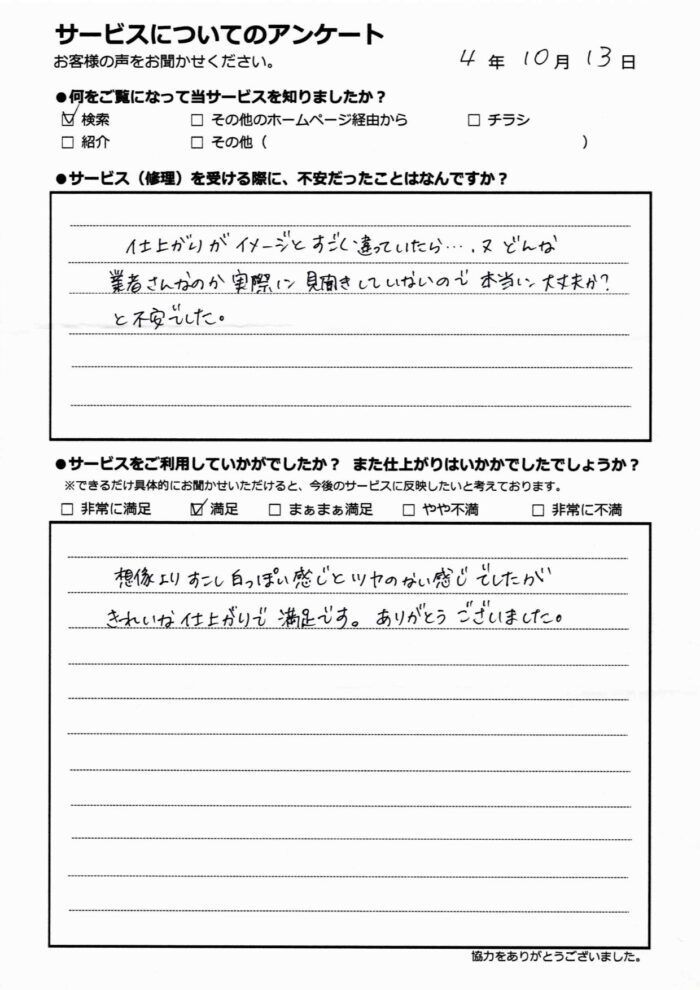 サービスについてのアンケート
お客様の声をお聞かせください。
4 年 10 月 13 日
●何をご覧になって当サービスを知りましたか？
☑ 検索 □ その他のホームページ経由から □ チラシ
□ 紹介 □ その他（ ）
●サービス（修理）を受ける際に、不安だったことはなんですか？
仕上がりがイメージとすごく違っていたら…、又どんな
業者さんなのか実際に見聞きしていないので本当に大丈夫か?
と不安でした。
●サービスをご利用していかがでしたか？ また仕上がりはいかかでしたでしょうか？
※できるだけ具体的にお聞かせいただけると、今後のサービスに反映したいと考えております。
□ 非常に満足 ☑ 満足 □ まぁまぁ満足 □ やや不満 □ 非常に不満
想像よりすこし白っぽい感じとツヤのない感じでしたが
きれいな仕上がりで満足です。ありがとうございました。
協力をありがとうございました。